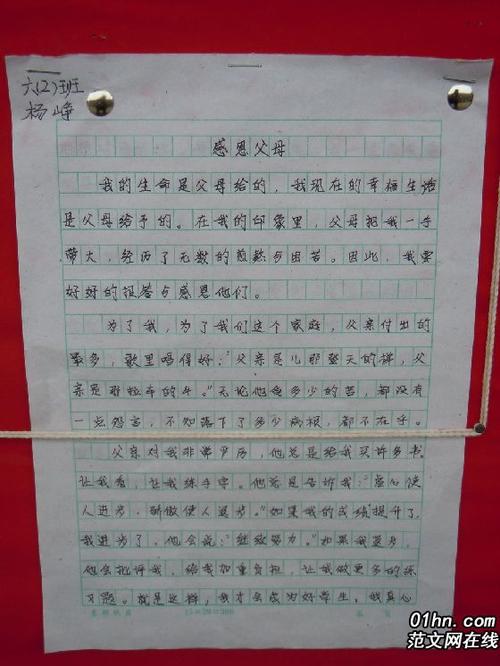 六(2)班
杨峥
感恩父母
我的生命是父母给的，我现在的幸福生活
是父母给予的。在我的印象里，父母把我一手
带大，经历了无数的煎熬与困苦。因此，我要
好好的报答与感恩他们。
为了我，为了我们这个家庭，父亲付出的
最多，歌里唱得好：“父亲是儿那登天的梯，父
亲是那拉车的牛。”无论他食多少的苦，都没有
一点怨言，不知落下了多少病根，都不在乎。
父亲对我非常严厉，他总是给我买许多书
让我看，让我练手字。他总是告诉我：“虚心使
人进步，骄傲使人退步。”如果我的成绩提升了，
我进步了，他会说：“继续努力。”如果我退步，
他会批评我，给我加重负担，让我做更多的练
习题。就是这样，我才会成为好学生。我真心
01hn.com
范文网在线